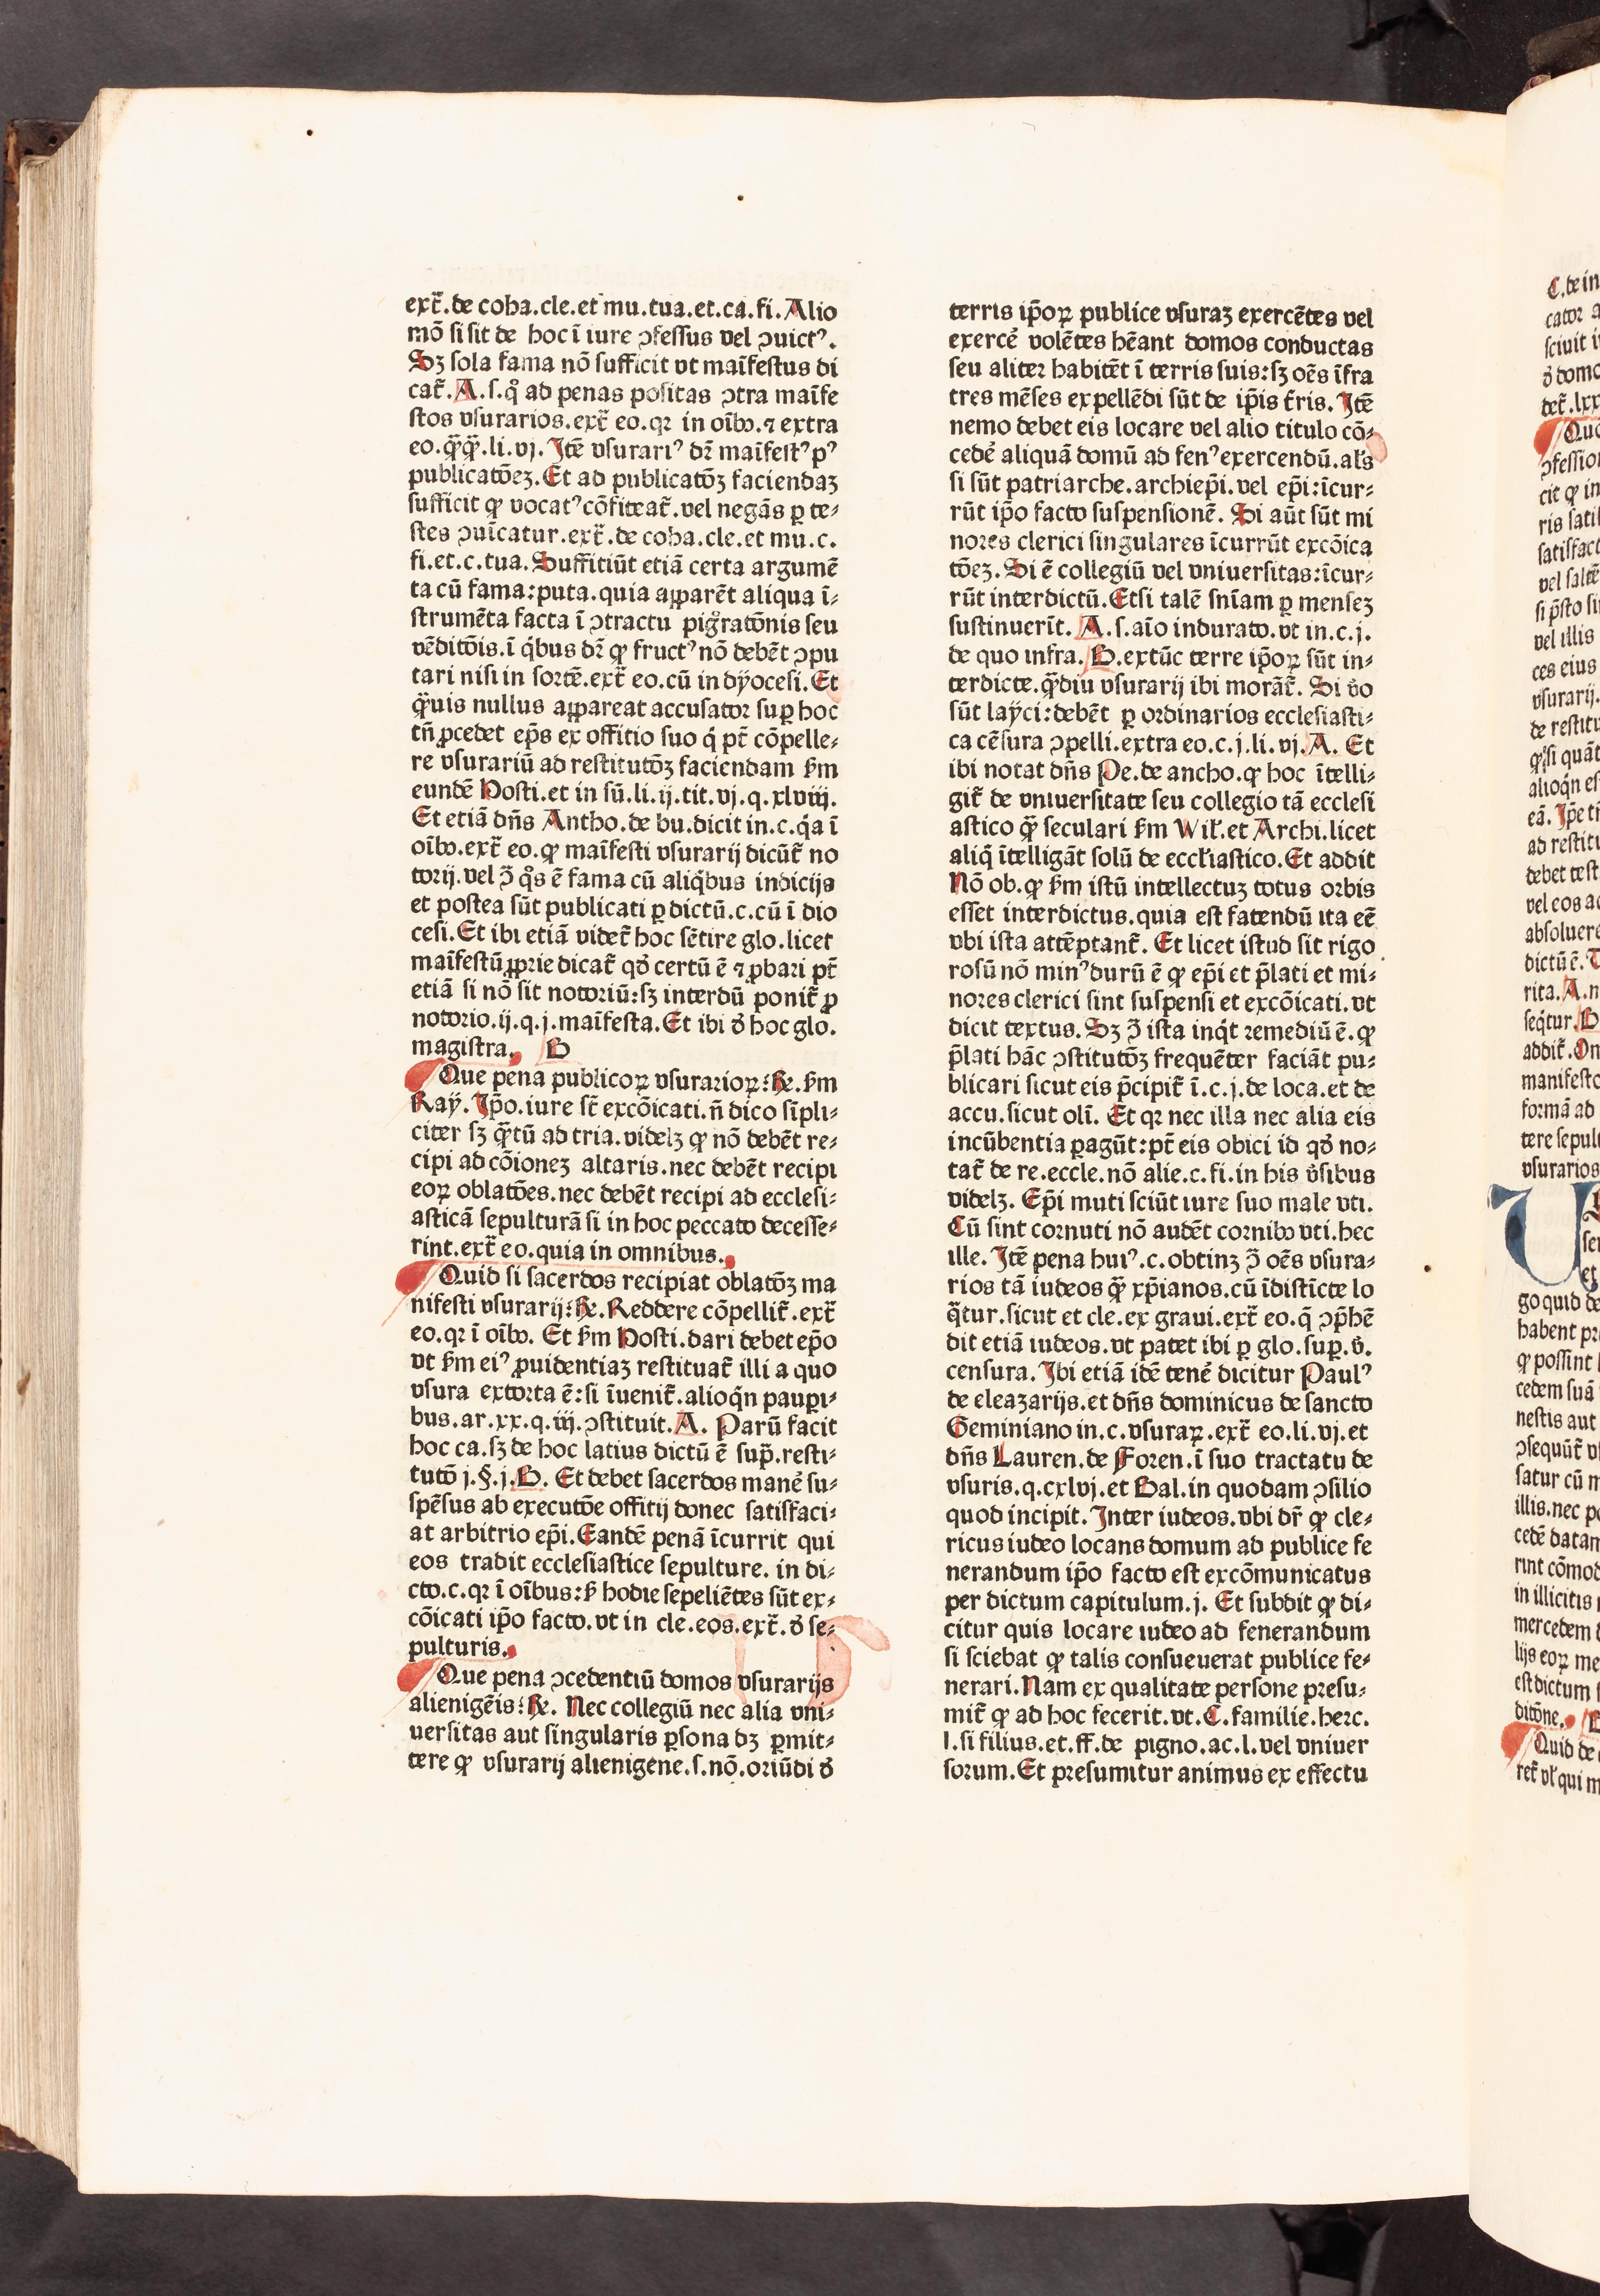 ext̄.de coha.cle.et mu.tua.et.ca.fi.Alio
mō si sit de hoc ī iure ↄfessus vel ↄuictꝰ.
Sꝫ sola fama nō sufficit vt maīfestus di
cat̄.A.s.qͦ ad penas positas ↄtra maīfe
stos vsurarios.ext̄ eo.qꝛ in oībꝫ.⁊ extra
eo.qꝙ̄qꝙ̄.li.vj.Itē vsurariꝰ dr̄ maīfestꝰ pꝰ
publicatōeꝫ.Et ad publicatōꝫ faciendaꝫ
sufficit ꝙ vocatꝰ cōfiteat̄.vel negās ꝑ te⸗
stes ↄuīcatur.ext̄.de coha.cle.et mu.c.
fi.et.c.tua.Suffitiūt etiā certa argumē
ta cū fama:puta.quia aꝑparēt aliqua ī⸗
strumēta facta ī ↄtractu pigͦratōnis seu
vēditōis.ī q̇bus dr̄ ꝙ fructꝰ nō debēt ↄpu
tari nisi in sortē.ext̄ eo.cū in dẏocesi.Et
qꝙ̄uis nullus aꝑpareat accusator suꝑ hoc
tn̄ ꝓcedet ep̄s ex offitio suo q̇ pt̄ cōpelle⸗
re vsurariū ad restitutōꝫ faciendam ẜm
eundē Hosti.et in sū.li.ij.tit.vj.q.xlviij.
Et etiā dn̄s Antho.de bu.dicit in.c.q̇a ī
oībꝫ.ext̄ eo.ꝙ maīfesti vsurarij dicūt̄ no
torij.vel ꝯ̄ qͦs ē fama cū aliq̇bus indicijs
et postea sūt publicati ꝑ dictū.c.cū ī dio
cesi.Et ibi etiā videt̄ hoc sētire glo.licet
maīfestū ꝓprie dicat̄ qđ certū ē ⁊ ꝓbari pt̄
etiā si nō sit notoriū:sꝫ interdū ponit̄ ꝓ
notorio.ij.q.j.maīfesta.Et ibi đ hoc glo.
magistra. B
Que pena publicoꝝ vsurarioꝝ:℞.ẜm
Raẏ.Ip̄o.iure st̄ excōicati.n̄ dico sīpli⸗
citer sꝫ qꝙ̄tū ad tria.videlꝫ ꝙ nō debēt re⸗
cipi ad cōioneꝫ altaris.nec debēt recipi
eoꝝ oblatōes.nec debēt recipi ad ecclesi⸗
asticā sepulturā si in hoc peccato decesse⸗
rint.ext̄ eo.quia in omnibus.
Quid si sacerdos recipiat oblatōꝫ ma
nifesti vsurarij:℞.Reddere cōpellit̄.ext̄
eo.qꝛ ī oībꝫ. Et ẜm Hosti.dari debet ep̄o
vt ẜm eiꝰ ꝓuidentiaꝫ restituat̄ illi a quo
vsura extorta ē:si īuenit̄.alioqn̄ pauꝑi⸗
bus.ar.xx.q.iij.ↄstituit.A. Parū facit
hoc ca.sꝫ de hoc latius dictū ē sup̄.resti⸗
tutō j.§.j.B. Et debet sacerdos manē su⸗
spēsus ab executōe offitij donec satisfaci⸗
at arbitrio ep̄i.Eandē penā īcurrit qui
eos tradit ecclesiastice sepulture. in di⸗
cto.c.qꝛ ī oībus:ẜ hodie sepeliētes sūt ex⸗
cōicati ip̄o facto.vt in cle.eos.ext̄.đ se⸗
pulturis.
Que pena ↄcedentiū domos vsurarijs
alienigēis:℞. Nec collegiū nec alia vni⸗
uersitas aut singularis ꝑsona dꝫ ꝑmit⸗
tere ꝙ vsurarij alienigene.s.nō.oriūdi đ
terris ip̄oꝝ publice vsuraꝫ exercētes vel
exercē volētes hēant domos conductas
seu aliter habitēt ī terris suis:sꝫ oēs īfra
tres mēses expellēdi sūt de ip̄is t̄ris. Itē
nemo debet eis locare vel alio titulo cō⸗
cedē aliquā domū ad fenꝰ exercendū.al̄s
si sūt patriarche.archiep̄i.vel ep̄i:īcur⸗
rūt ip̄o facto suspensionē. Si aūt sūt mi
nores clerici singulares īcurrūt excōica
tōeꝫ. Si ē collegiū vel vniuersitas:īcur⸗
rūt interdictū.Etsi talē sn̄iam ꝑ menseꝫ
sustinuerīt. A.s.aīo indurato.vt in.c.j.
de quo infra.B.extūc terre ip̄oꝝ sūt in⸗
terdicte.qꝙ̄diu vsurarij ibi morāt̄. Si ṽo
sūt laẏci:debēt ꝑ ordinarios ecclesiasti⸗
ca cēsura ↄpelli.extra eo.c.j.li.vj.A. Et
ibi notat dn̄s Pe.de ancho.ꝙ hoc ītelli⸗
git̄ de vniuersitate seu collegio tā ecclesi
astico qꝙ̄ seculari ẜm Wil̄.et Archi.licet
aliq̇ ītelligāt solū de eccl̄iastico.Et addit
Nō ob.ꝙ ẜm istū intellectuꝫ totus orbis
esset interdictus.quia est fatendū ita eē
vbi ista attēptant̄. Et licet istud sit rigo
rosū nō minꝰ durū ē ꝙ ep̄i et p̄lati et mi⸗
nores clerici sint suspensi et excōicati.vt
dicit textus. Sꝫ ꝯ̄ ista inq̇t remediū ē.ꝙ
p̄lati hāc ↄstitutōꝫ frequēter faciāt pu⸗
blicari sicut eis p̄cipit̄ ī.c.j.de loca.et de
accu.sicut olī. Et qꝛ nec illa nec alia eis
incūbentia ꝑagūt:pt̄ eis obici id qđ no⸗
tat̄ de re.eccle.nō alie.c.fi.in his ṽsibus
videlꝫ. Ep̄i muti sciūt iure suo male vti.
Cū sint cornuti nō audēt cornibꝫ vti.hec
ille. Itē pena huiꝰ.c.obtinꝫ ꝯ̄ oēs vsura⸗
rios tā iudeos qꝙ̄ xp̄ianos.cū īdistīcte lo
q̄tur.sicut et cle.ex graui.ext̄ eo.q̄ ↄp̄hē
dit etiā iudeos.vt patet ibi ꝑ glo.suꝑ.ṽ.
censura. Ibi etiā idē tenē dicitur Paulꝰ
de eleazarijs.et dn̄s dominicus de sancto
Geminiano in.c.vsuraꝝ.ext̄ eo.li.vj.et
dn̄s Lauren.de Foren.ī suo tractatu de
vsuris.q.cxlvj.et Bal.in quodam ↄsilio
quod incipit. Inter iudeos.vbi dr̄ ꝙ cle⸗
ricus iudeo locans domum ad publice fe
nerandum ip̄o facto est excōmunicatus
per dictum capitulum.j. Et subdit ꝙ di⸗
citur quis locare iudeo ad fenerandum
si sciebat ꝙ talis consueuerat publice fe⸗
nerari.Nam ex qualitate persone presu⸗
mit̄ ꝙ ad hoc fecerit.vt.C.familie.herc.
l.si filius.et.ff.de pigno.ac.l.vel vniuer
sorum.Et presumitur animus ex effectu